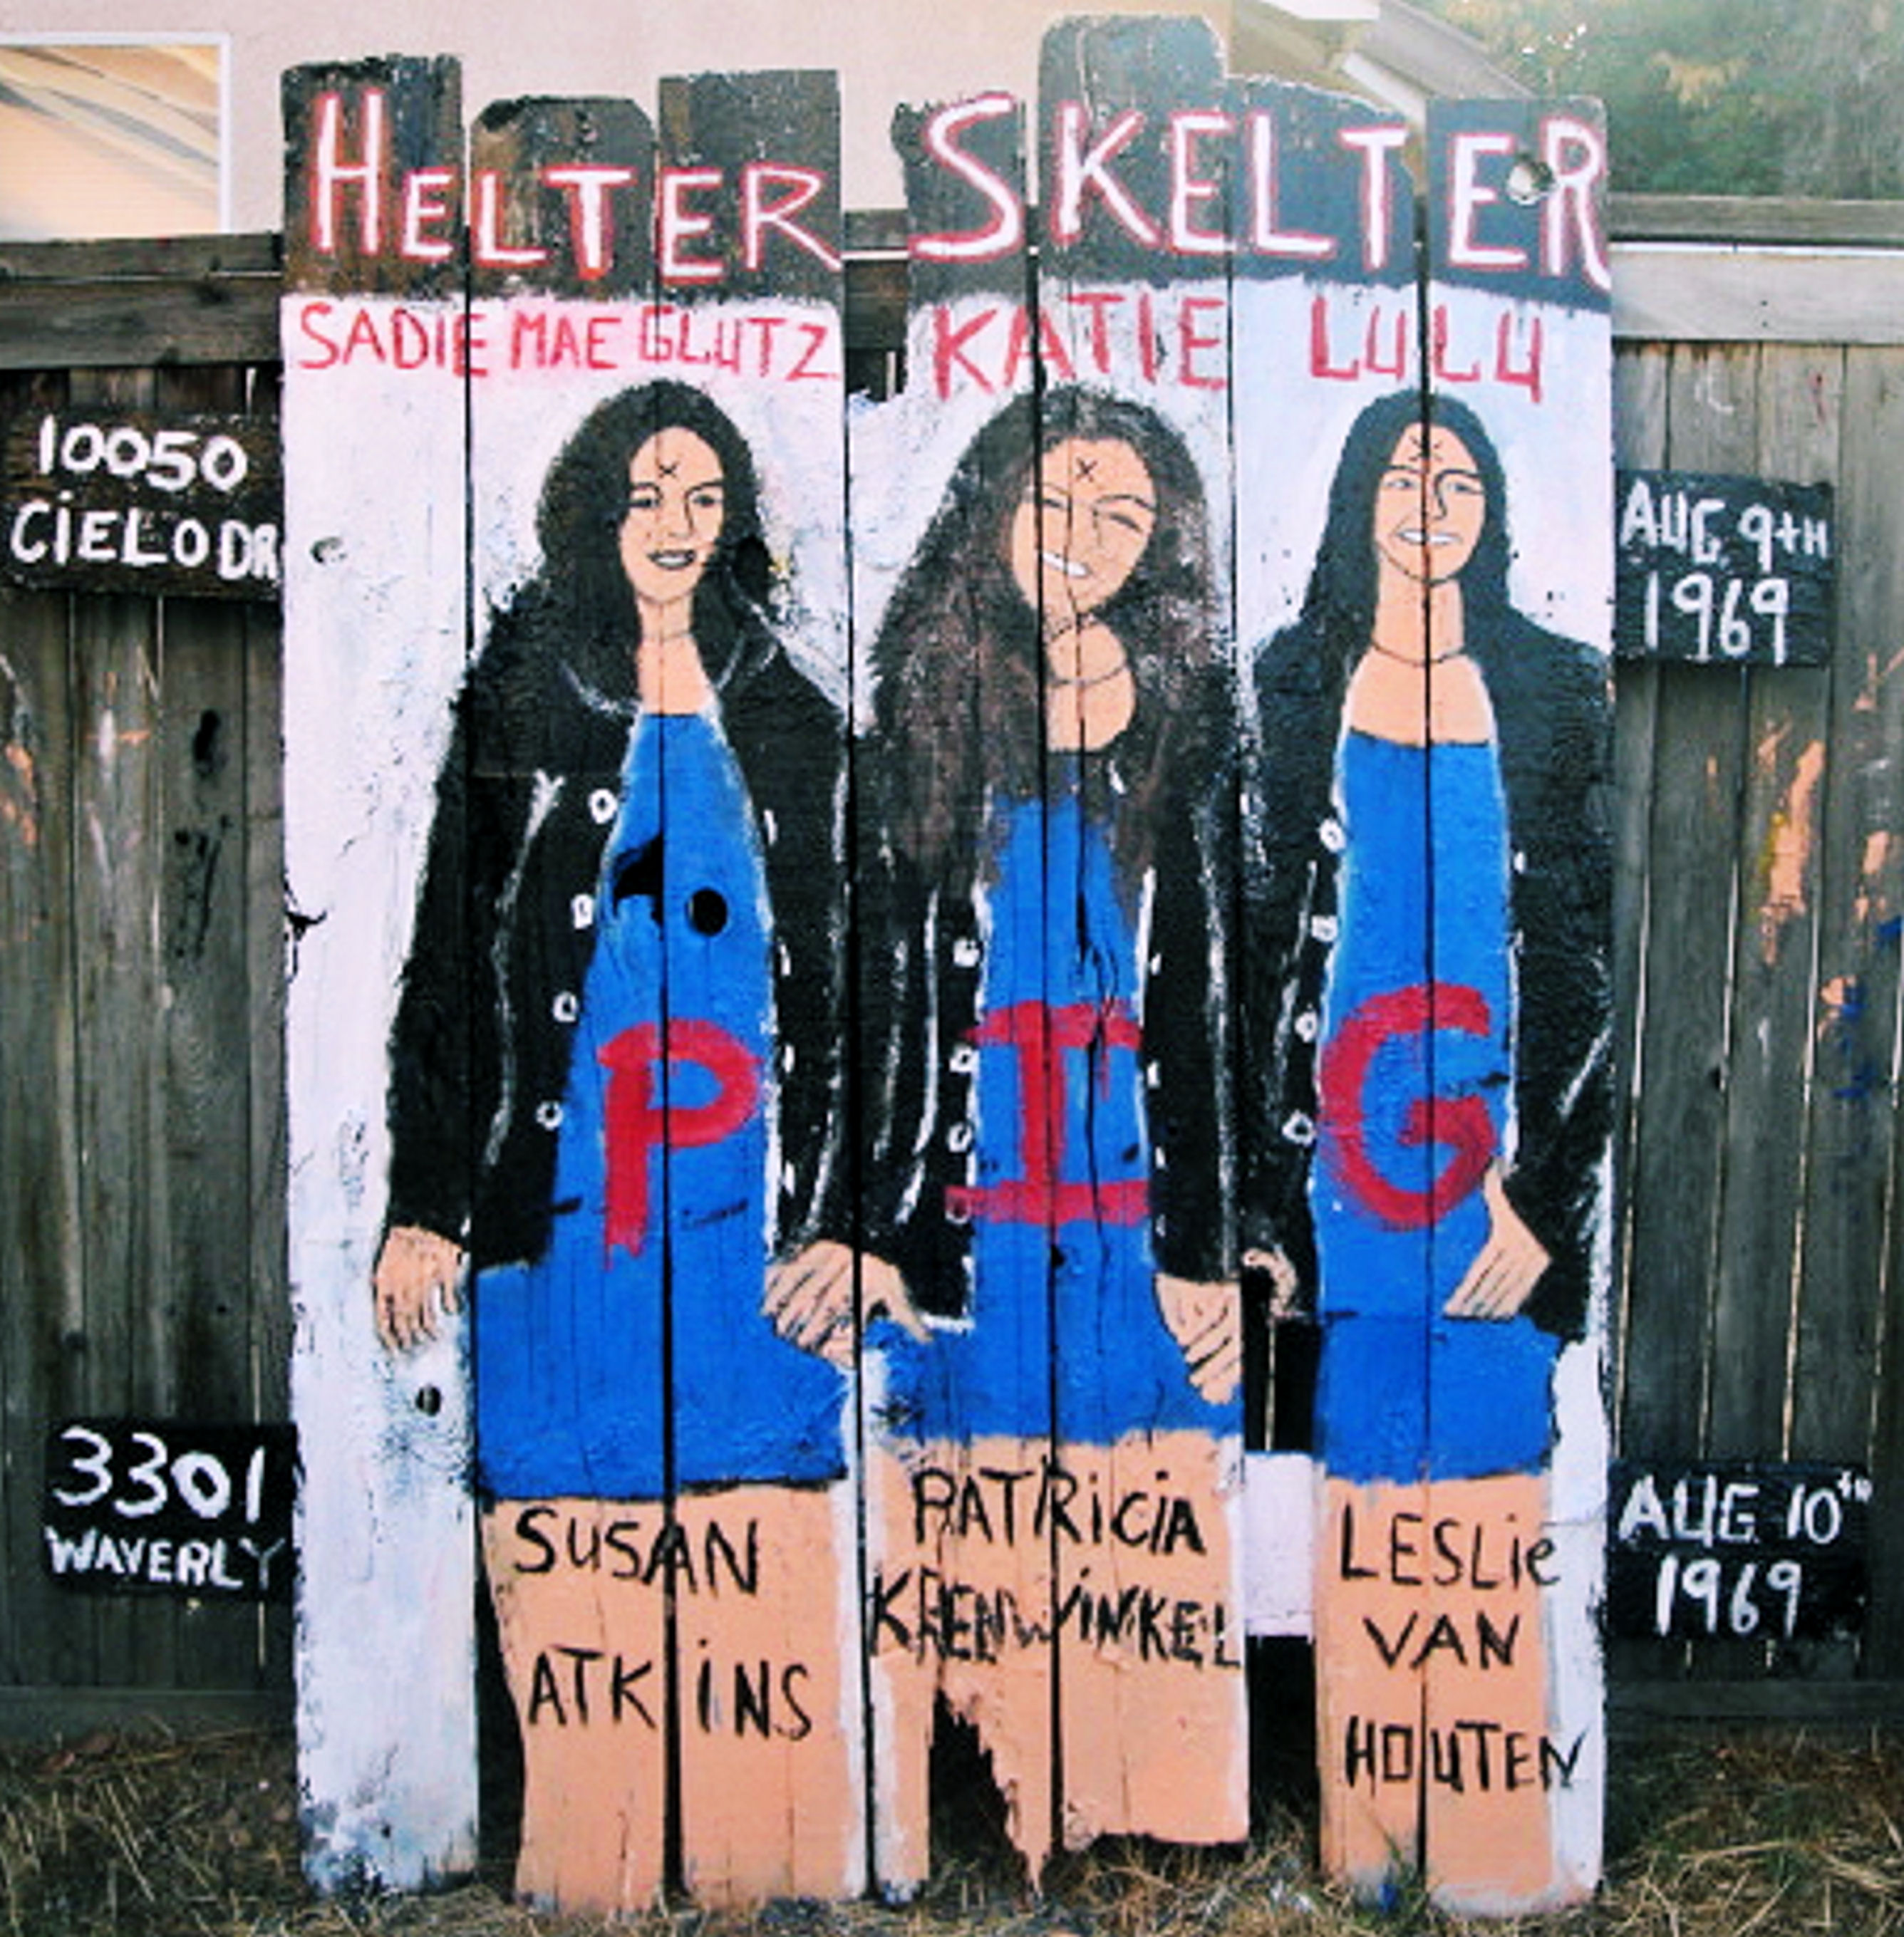 HELTER SKELTER
SADIE MAE GLUTZ KATIE LULU
10050
CIELO DR
AUG 9TH
1969
PIG
3301
WAVERLY
AUG 10TH
1969
SUSAN
ATKINS
PATRICIA
KRENWINKEL
LESLIE
VAN
HOUTEN